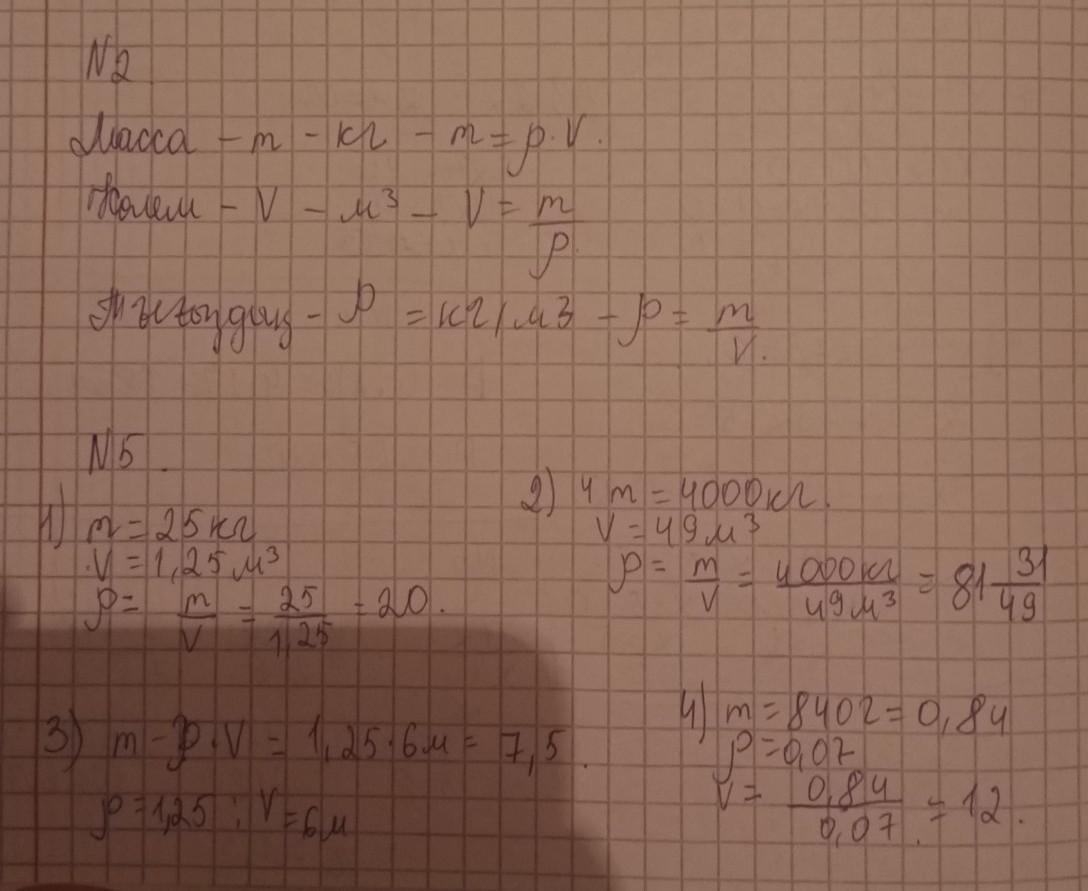 N2
Масса - m - кг - m = ρ · V.
Көлем - V - м³ - V = m/ρ.
Тығыздық - ρ = кг/м3 - ρ = m/V.
N5.
1) m = 25 кг
V = 1,25 м³
ρ = m/V = 25/1,25 = 20.
2) 4 m = 4000 кг.
V = 49 м³
ρ = m/V = 4000кг/49м³ = 81 31/49
3) m - ρ · V = 1,25 · 6м = 7,5.
ρ = 1,25 ; V = 6м
4) m = 840г = 0,84
ρ = 0,07
V = 0,84/0,07 = 12.